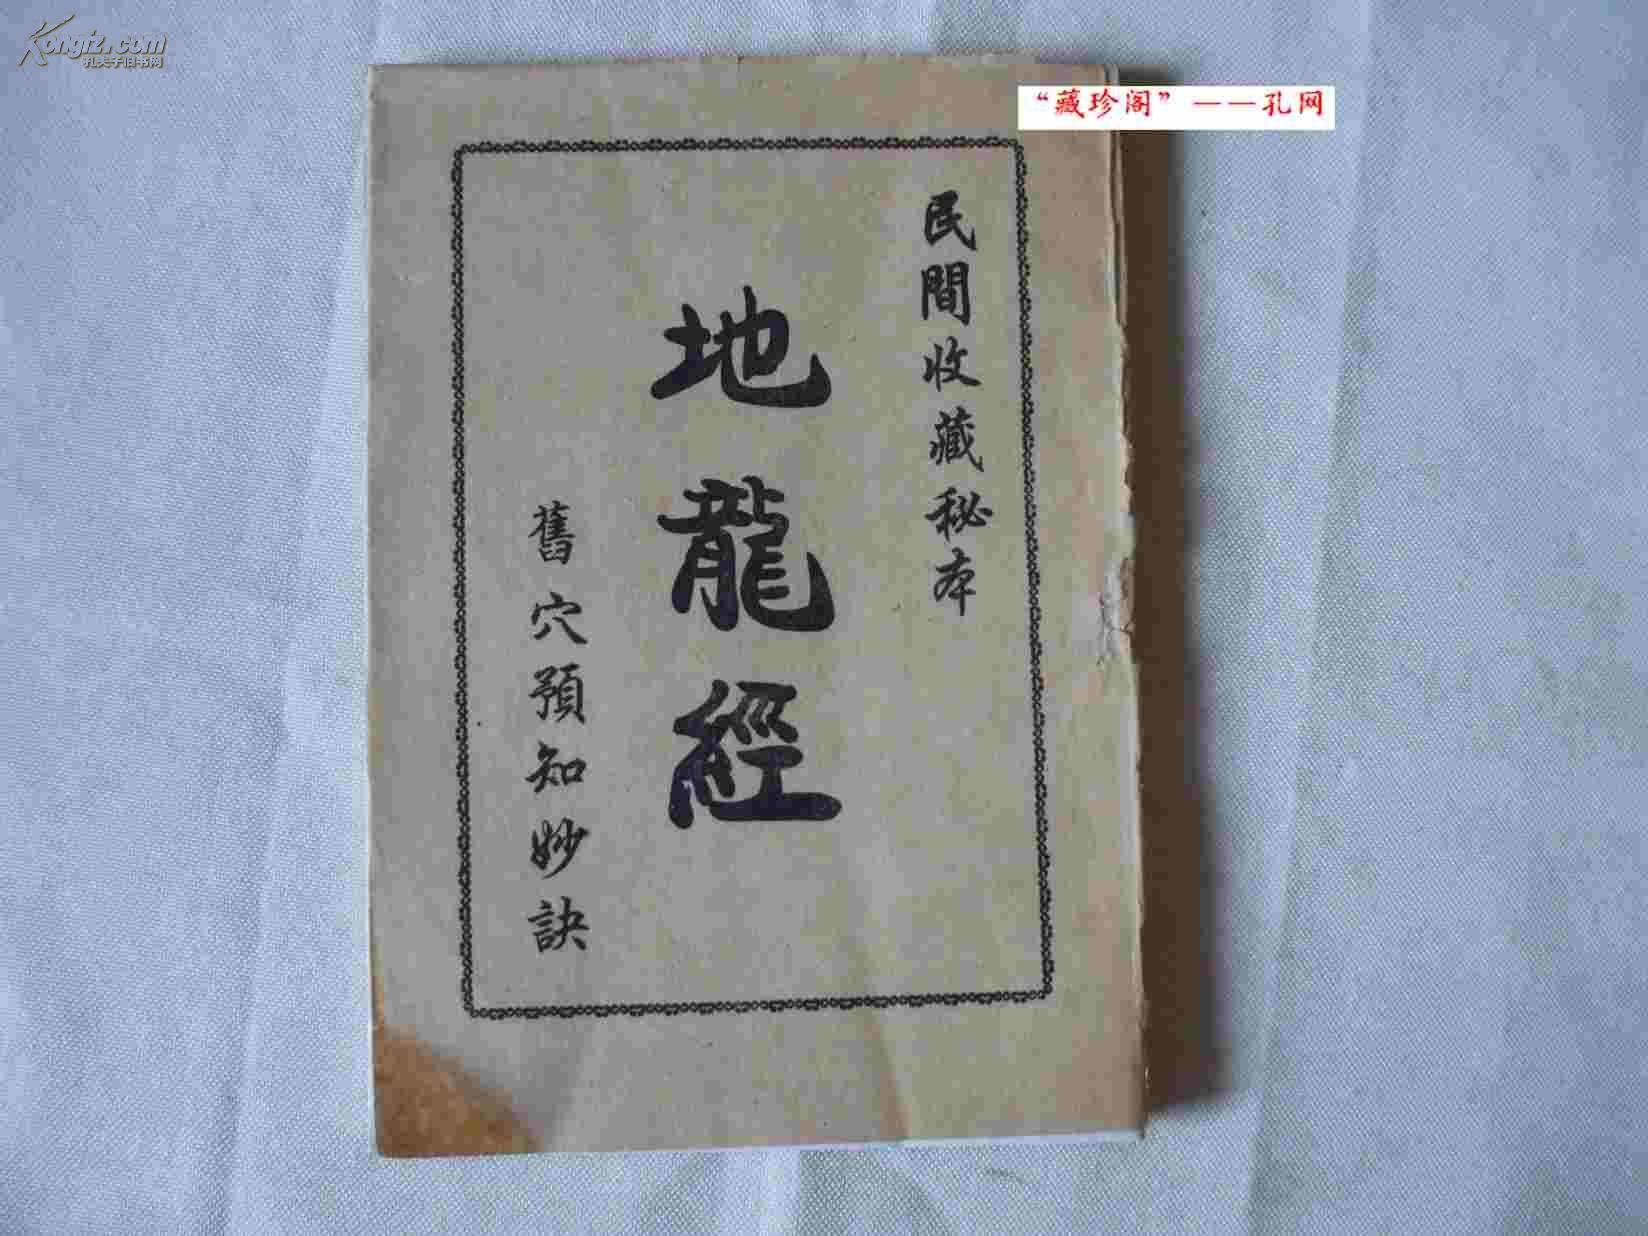 Kongfz.com
孔夫子旧书网
“藏珍阁”——孔网
民間收藏秘本
地龍經
舊穴預知妙訣